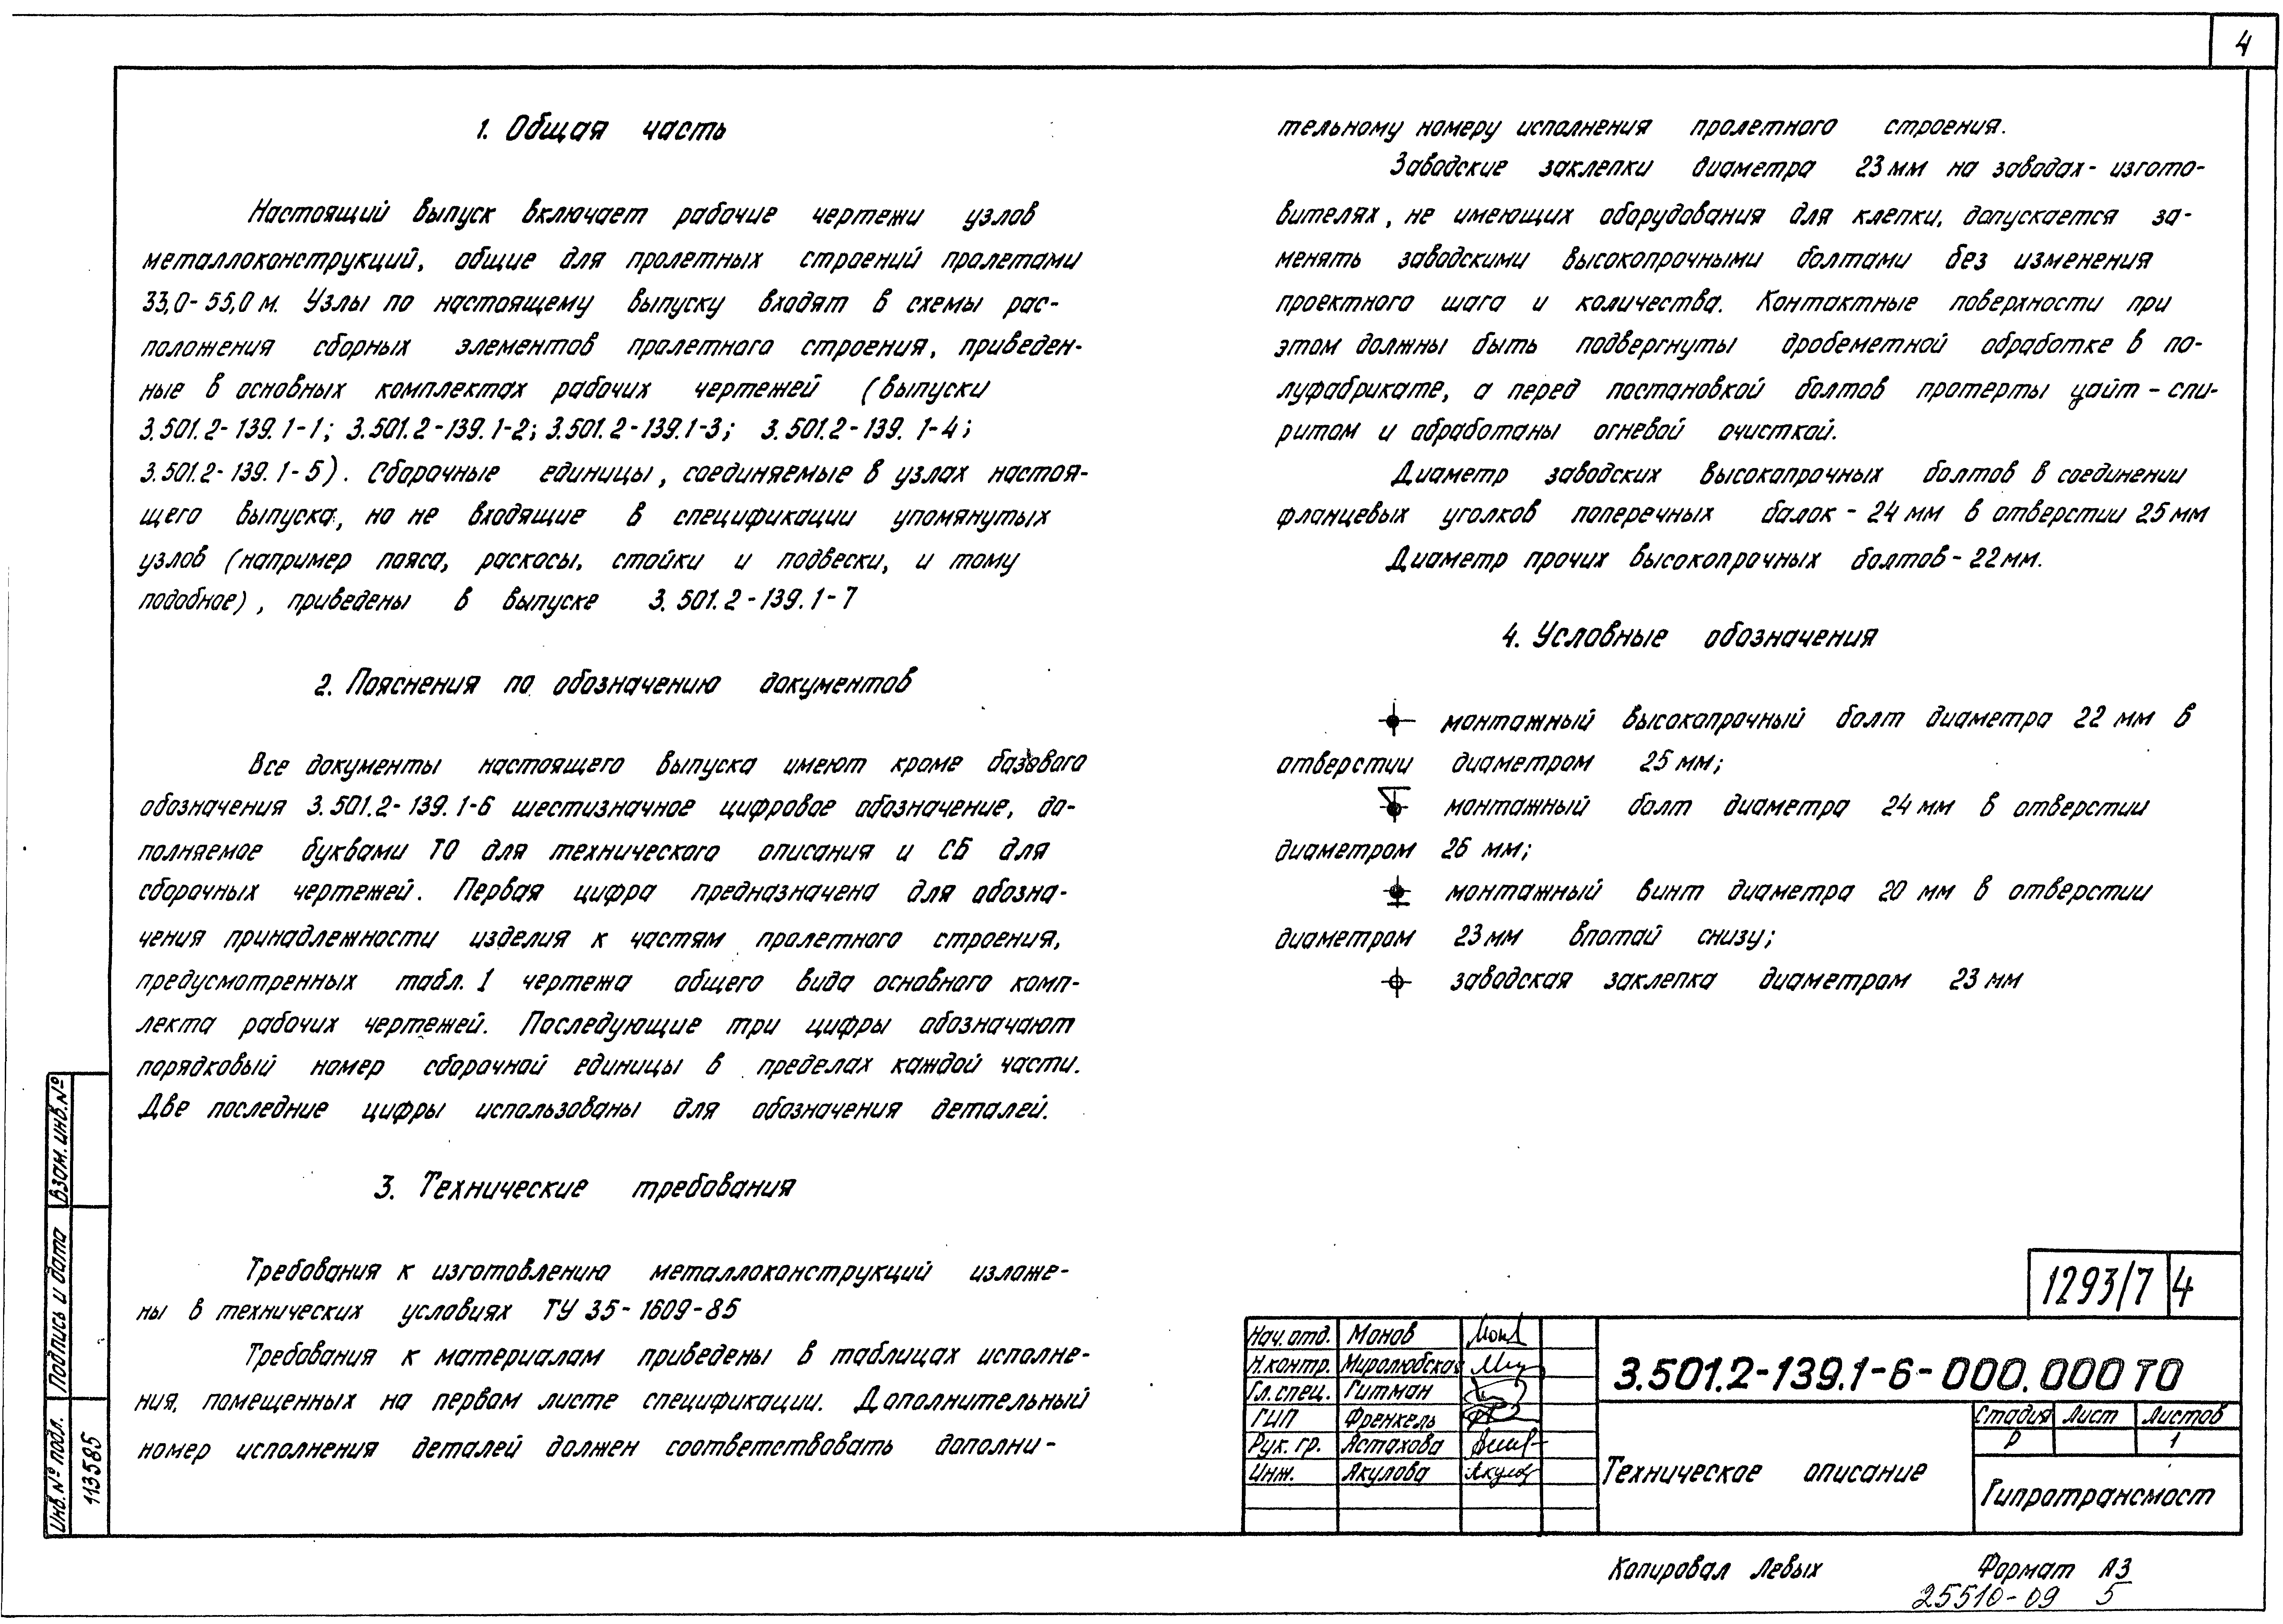 4
1. Общая часть
Настоящий выпуск включает рабочие чертежи узлов
металлоконструкций, общие для пролетных строений пролетами
33,0-55,0 м. Узлы по настоящему выпуску входят в схемы рас-
положения сборных элементов пролетного строения, приведен-
ные в основных комплектах рабочих чертежей (выпуски
3.501.2-139.1-1; 3.501.2-139.1-2; 3.501.2-139.1-3; 3.501.2-139.1-4;
3.501.2-139.1-5). Сборочные единицы, соединяемые в узлах настоя-
щего выпуска, но не входящие в спецификации упомянутых
узлов (например пояса, раскосы, стойки и подвески, и тому
подобное), приведены в выпуске 3.501.2-139.1-7
2. Пояснения по обозначению документов
Все документы настоящего выпуска имеют кроме базового
обозначения 3.501.2-139.1-6 шестизначное цифровое обозначение, до-
полняемое буквами ТО для технического описания и СБ для
сборочных чертежей. Первая цифра предназначена для обозна-
чения принадлежности изделия к частям пролетного строения,
предусмотренных табл. 1 чертежа общего вида основного комп-
лекта рабочих чертежей. Последующие три цифры обозначают
порядковый номер сборочной единицы в пределах каждой части.
Две последние цифры использованы для обозначения деталей.
3. Технические требования
Требования к изготовлению металлоконструкций изложе-
ны в технических условиях ТУ 35-1609-85
Требования к материалам приведены в таблицах исполне-
ния, помещенных на первом листе спецификации. Дополнительный
номер исполнения деталей должен соответствовать дополни-
тельному номеру исполнения пролетного строения.
Заводские заклепки диаметра 23 мм на заводах-изгото-
вителях, не имеющих оборудования для клепки, допускается за-
менять заводскими высокопрочными болтами без изменения
проектного шага и количества. Контактные поверхности при
этом должны быть подвергнуты дробеметной обработке в по-
луфабрикате, а перед постановкой болтов протерты уайт-спи-
ритом и обработаны огневой очисткой.
Диаметр заводских высокопрочных болтов в соединении
фланцевых уголков поперечных балок - 24 мм в отверстии 25 мм
Диаметр прочих высокопрочных болтов - 22 мм.
4. Условные обозначения
монтажный высокопрочный болт диаметра 22 мм в
отверстии диаметром 25 мм;
монтажный болт диаметра 24 мм в отверстии
диаметром 26 мм;
монтажный винт диаметра 20 мм в отверстии
диаметром 23 мм впотай снизу;
заводская заклепка диаметром 23 мм
Взам. инв. №
Подпись и дата
Инв. № подл.
113585
1293/7 4
Нач. отд. Монов
Н. контр. Миролюбская
Гл. спец. Гитман
ГИП Френкель
Рук. гр. Астахова
Инж. Акулова
3.501.2-139.1-6-000.000 ТО
Техническое описание
Стадия Лист Листов
Р 1
Гипротрансмост
Копировал Левых Формат А3
25510-09 5